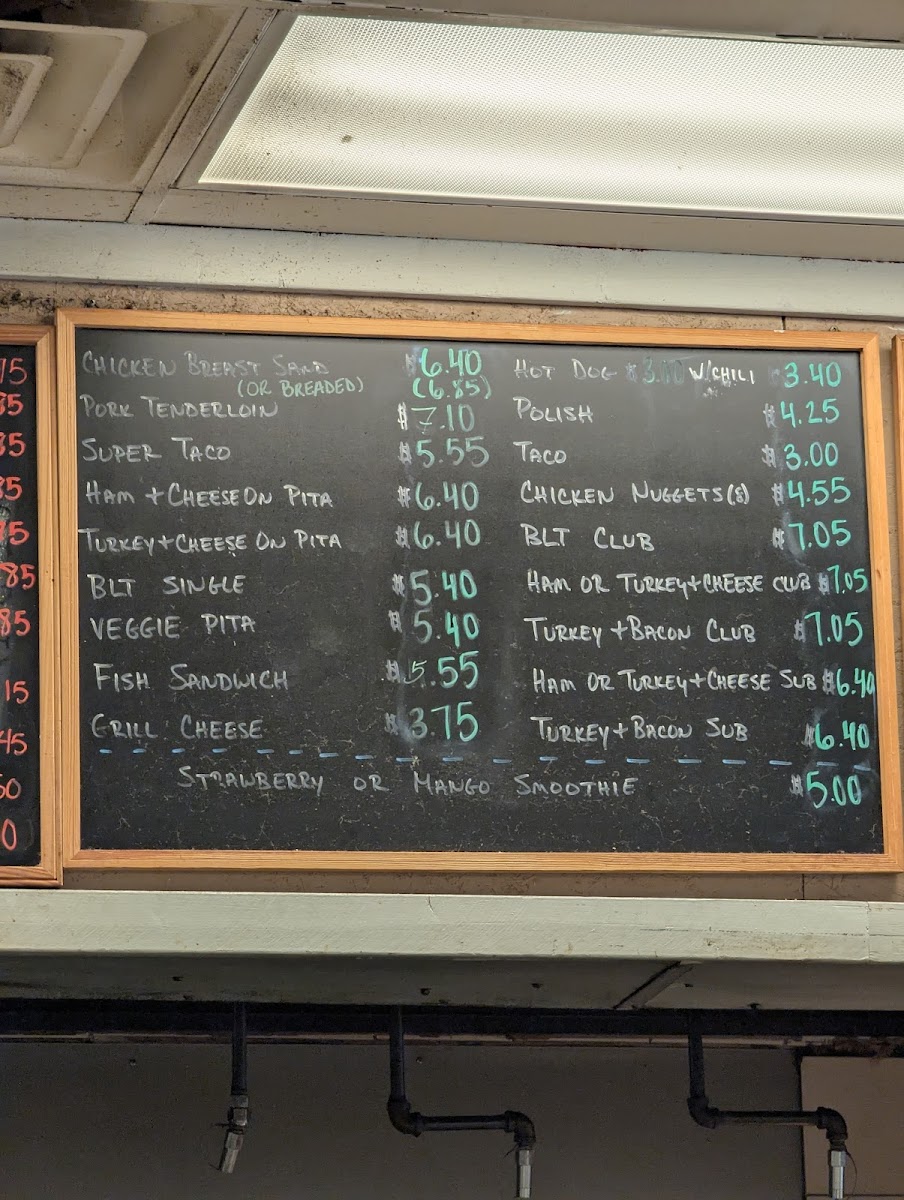 CHICKEN BREAST SAND $6.40
(OR BREADED) (6.85)
PORK TENDERLOIN $7.10
SUPER TACO $5.55
HAM + CHEESE ON PITA $6.40
TURKEY + CHEESE ON PITA $6.40
BLT SINGLE $5.40
VEGGIE PITA $5.40
FISH SANDWICH $5.55
GRILL CHEESE $3.75
HOT DOG W/CHILI $3.40
POLISH $4.25
TACO $3.00
CHICKEN NUGGETS (8) $4.55
BLT CLUB $7.05
HAM OR TURKEY + CHEESE CLUB $7.05
TURKEY + BACON CLUB $7.05
HAM OR TURKEY + CHEESE SUB $6.40
TURKEY + BACON SUB $6.40
STRAWBERRY OR MANGO SMOOTHIE $5.00